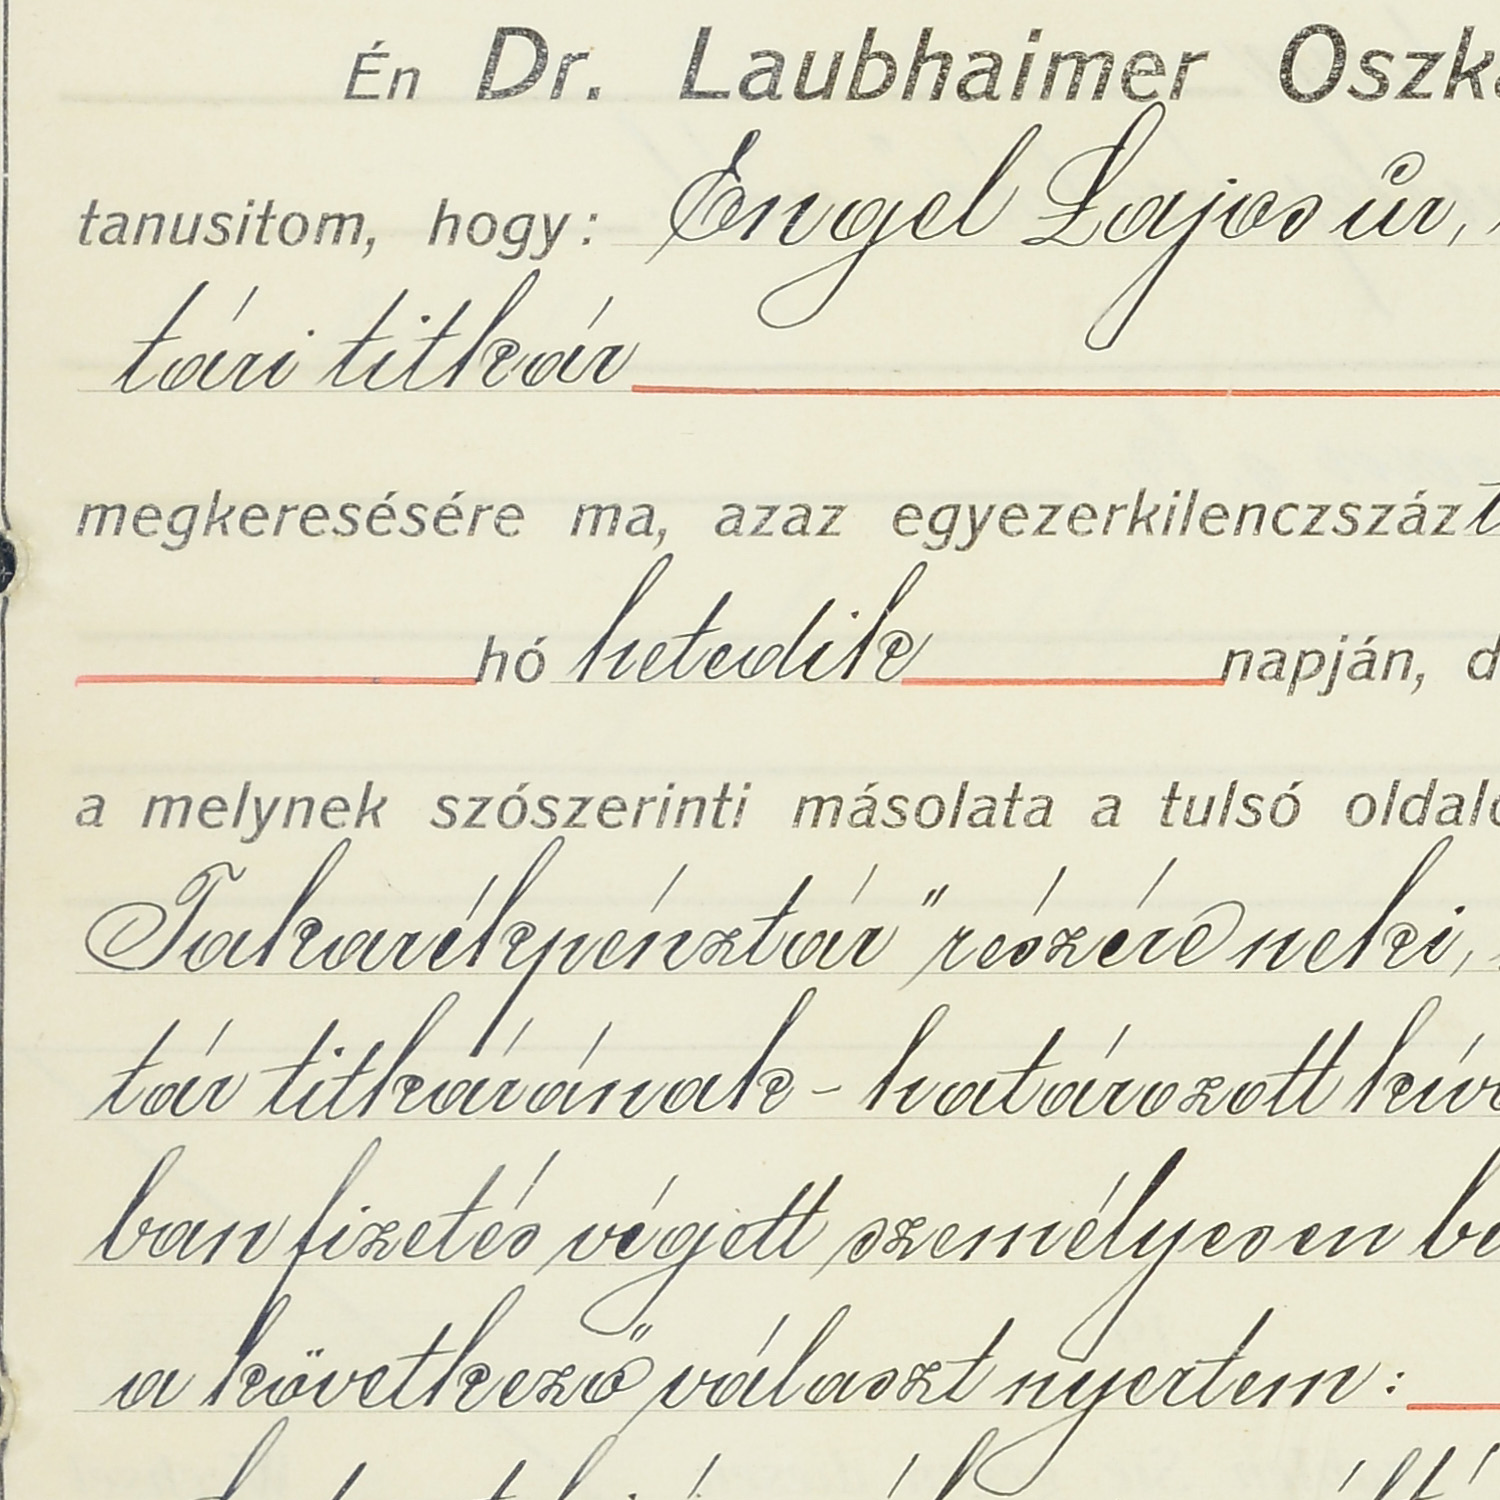 Én Dr. Laubhaimer Oszká
tanusitom, hogy: Engel Lajos úr,
tári titkár
megkeresésére ma, azaz egyezerkilenczszáz
hó hetedik napján, d
a melynek szószerinti másolata a tulsó oldalo
Takarékpénztár" részére neki,
tár titkárának - határozott kív
ban fizetés végett személyesen be
a következő választ nyertem: